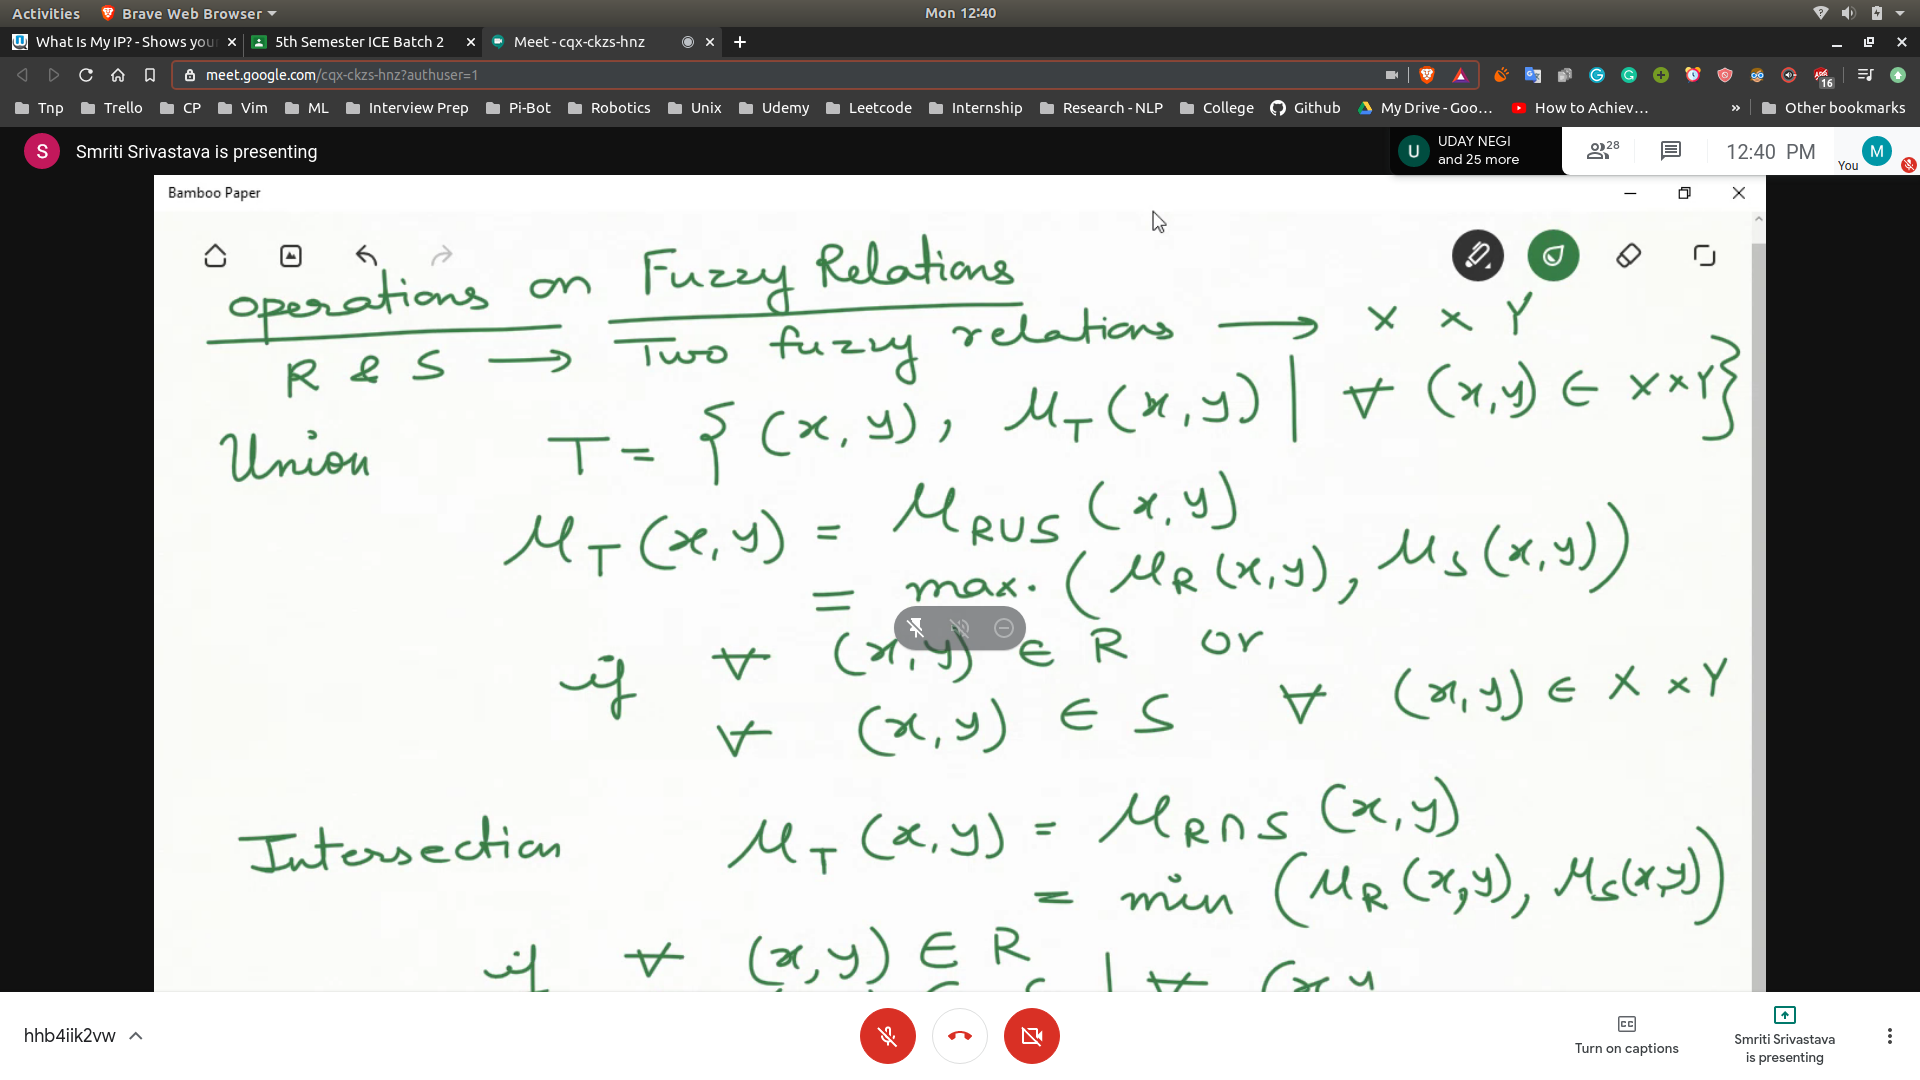 Activities Brave Web Browser Mon 12:40
What Is My IP? - Shows you 5th Semester ICE Batch 2 Meet - cqx-ckzs-hnz
meet.google.com/cqx-ckzs-hnz?authuser=1 16
Tnp Trello CP Vim ML Interview Prep Pi-Bot Robotics Unix Udemy Leetcode Internship Research - NLP College Github My Drive - Goo... How to Achiev... » Other bookmarks
S Smriti Srivastava is presenting U UDAY NEGI and 25 more 28 12:40 PM You M
Bamboo Paper
operations on Fuzzy Relations
R & S → Two fuzzy relations → X × Y
Union T = { (x, y), μ_T (x, y) | ∀ (x, y) ∈ X × Y }
μ_T (x, y) = μ_R∪S (x, y)
= max. ( μ_R (x, y), μ_S (x, y) )
if ∀ (x, y) ∈ R or
∀ (x, y) ∈ S ∀ (x, y) ∈ X × Y
Intersection μ_T (x, y) = μ_R∩S (x, y)
= min ( μ_R (x, y), μ_S (x, y) )
if ∀ (x, y) ∈ R
hhb4iik2vw Turn on captions Smriti Srivastava is presenting